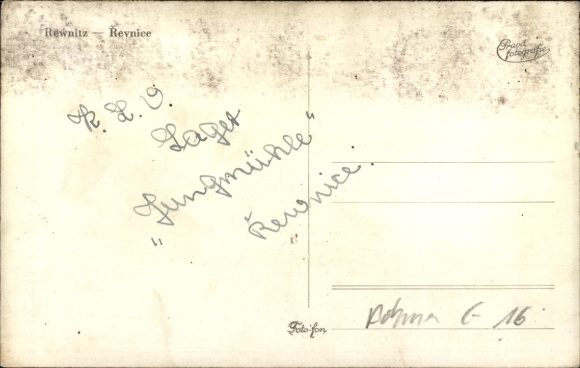 Rewnitz — Řevnice
Pravá
fotografie
K. L. V.
Lager
"Jungmühle"
Řevnice.
Foto-fon
Böhm G 16